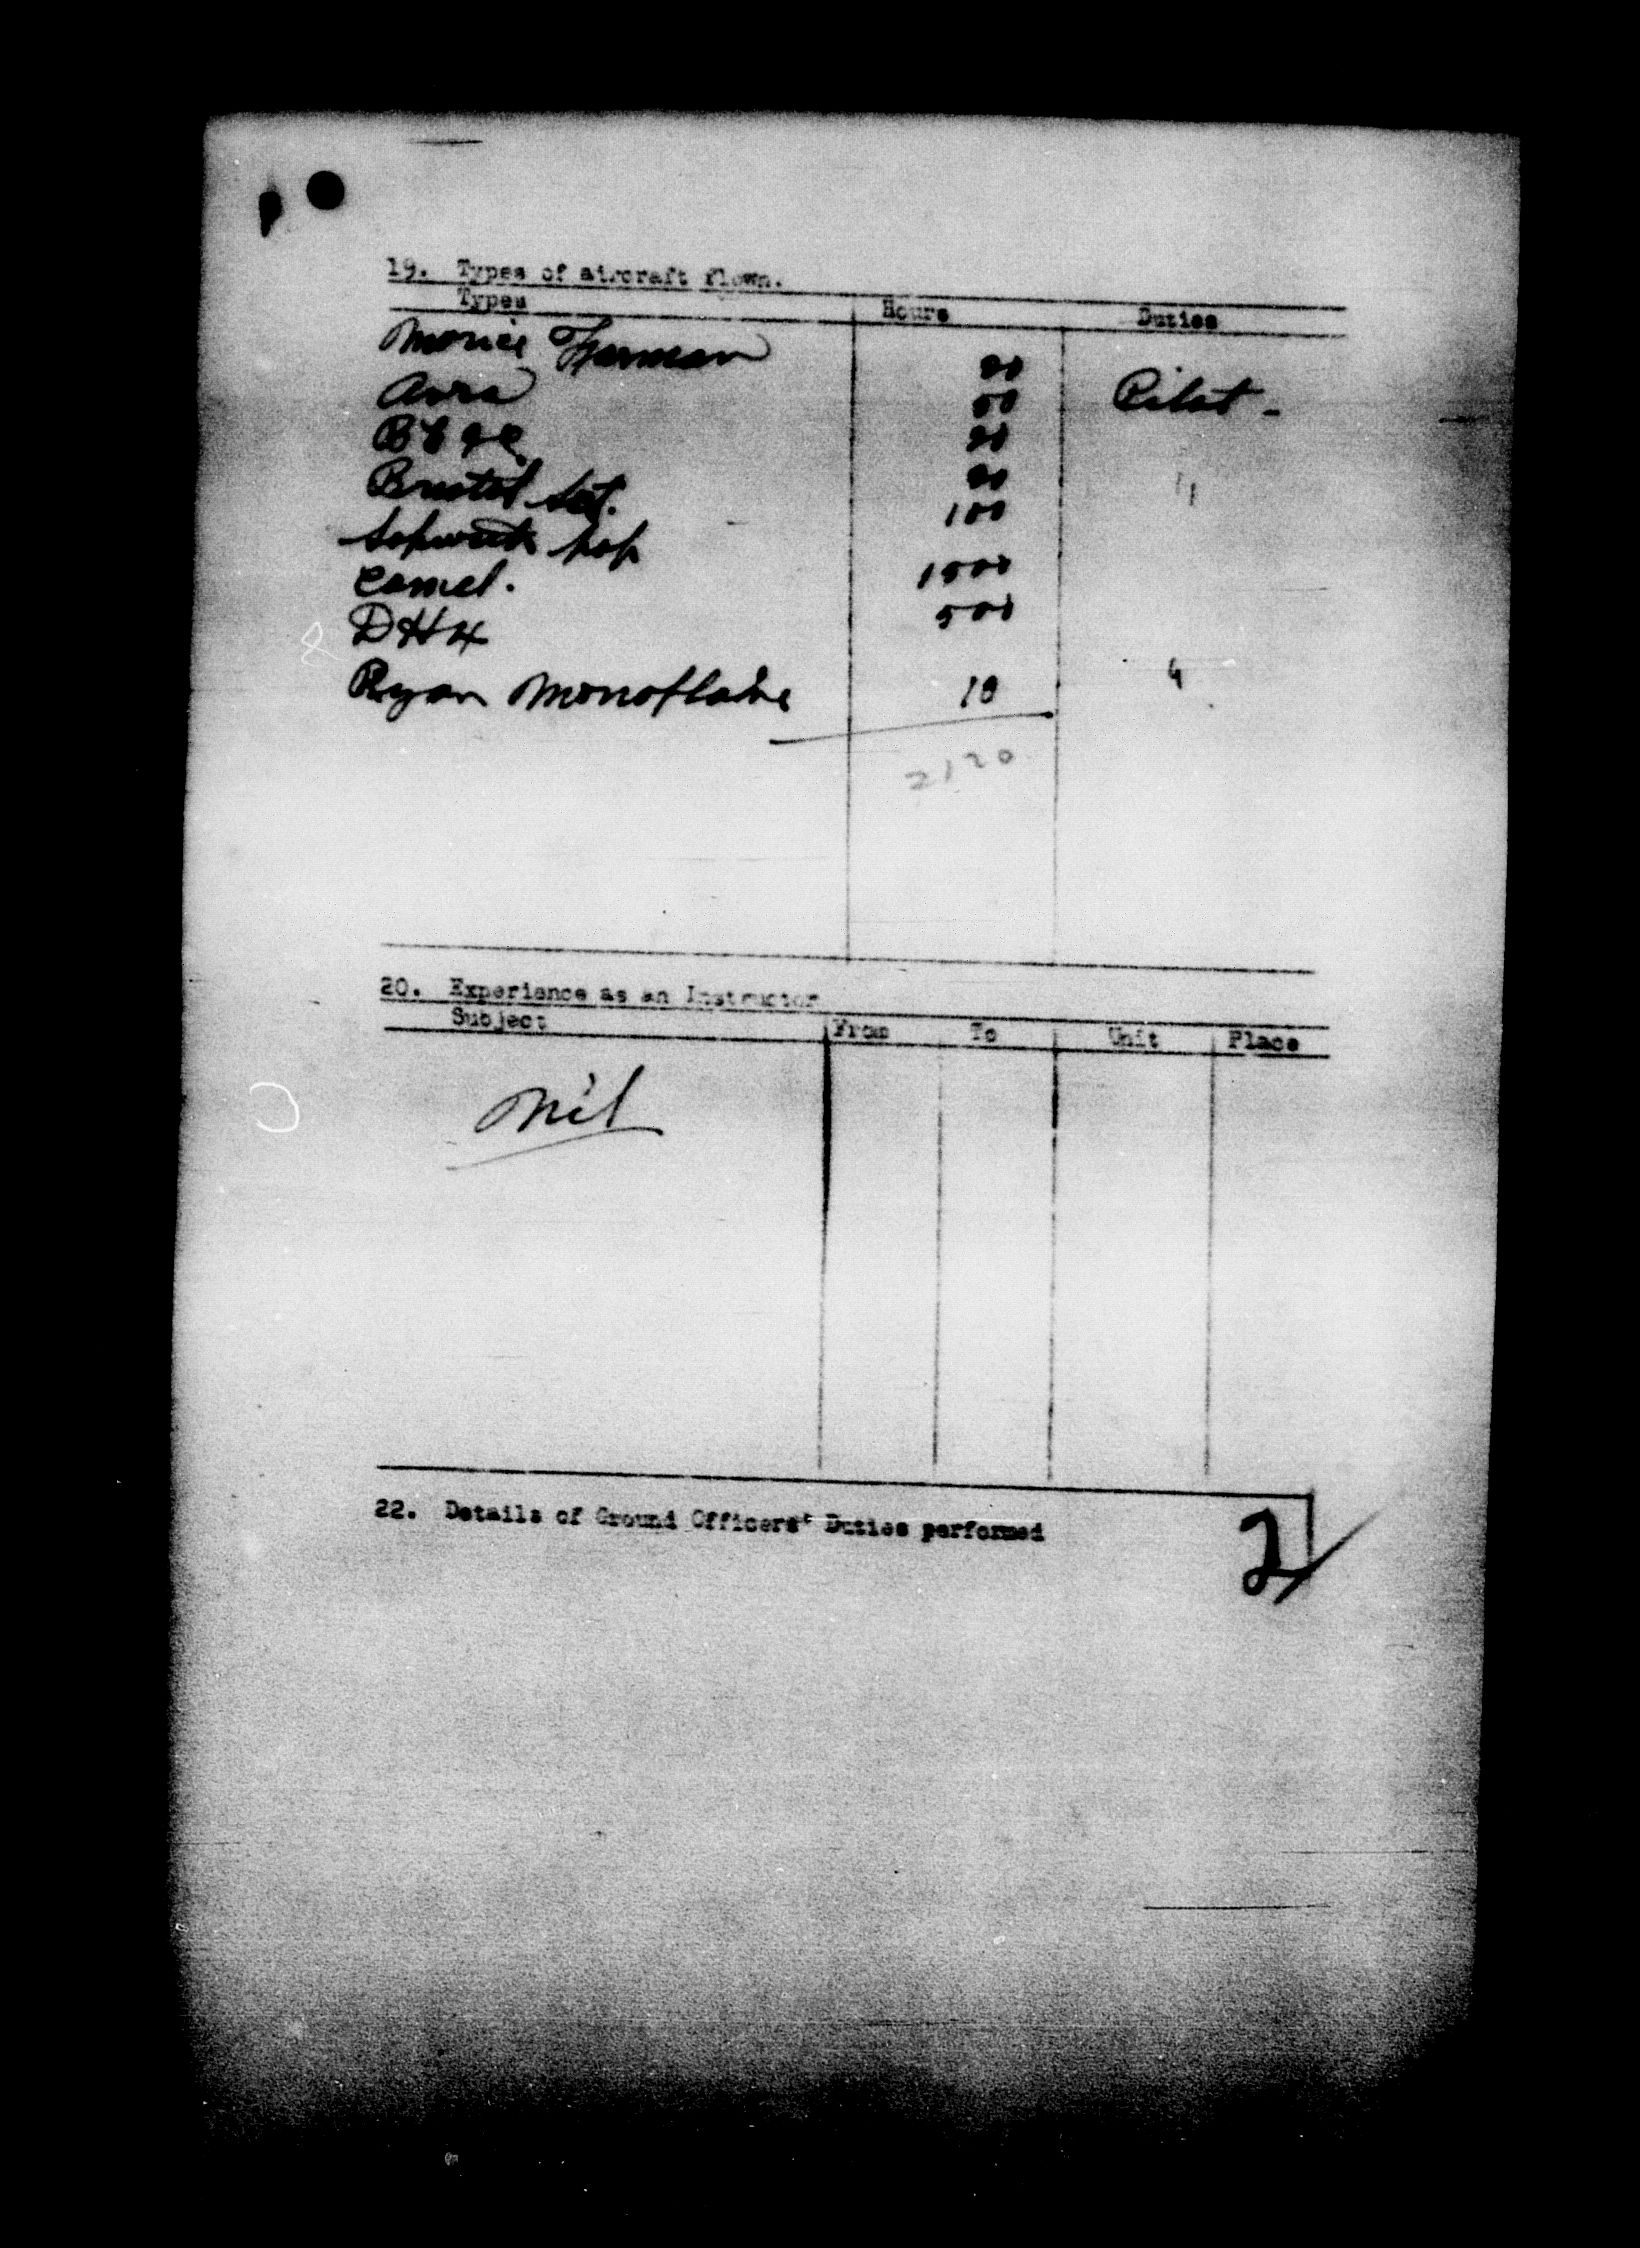 19. Types of aircraft flown.
Types Hours Duties
Morice Farman 20
Avro 50 Pilot -
BE 2e 20
Bristol Sct. 20 "
Sopwith pup 100
Camel. 1500
DH4 500
Ryan Monoplane 10 "
2120
20. Experience as an Instructor
Subject From To Unit Place
Nil
22. Details of Ground Officers' Duties performed
2